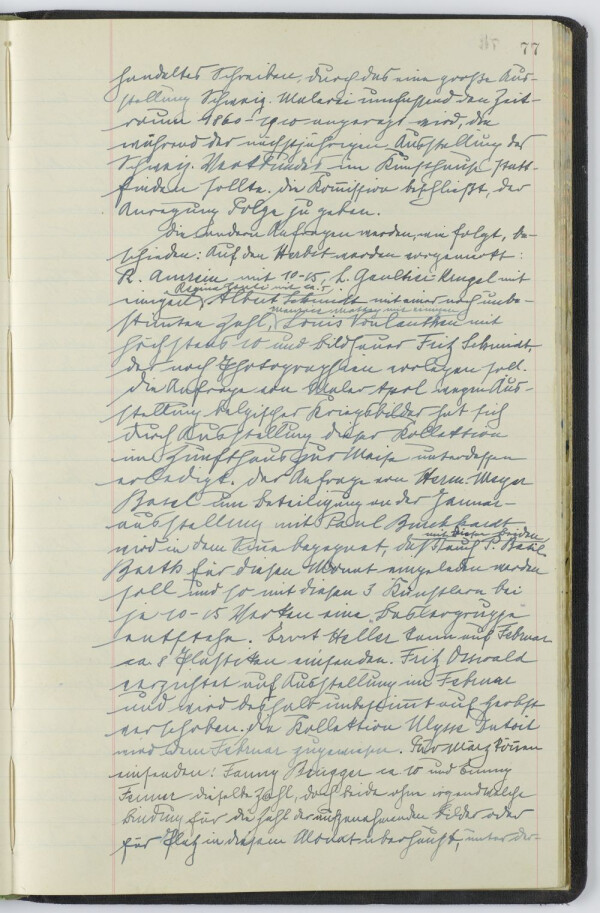 77
handeltes Schreiben, durch das eine große Aus-
stellung Schweiz. Malerei umfassend den Zeit-
raum 1860-1910 angeregt wird, die
während der nächstjährigen Ausstellung des
Schweiz. Werkbundes im Kunsthause statt-
finden sollte. Die Kommission beschließt, der
Anregung Folge zu geben.
Die andern Anfragen werden, wie folgt, be-
schieden: Auf den Herbst werden vorgemerkt:
R. Amrein mit 10-15, L. Gaultier mit
Regina wie ca. 5
einigen, Albert Schmidt mit einer noch unbe-
wie einigen
stimmten Zahl, Louis Vonlanthen mit
höchstens 10 und Bildhauer Fritz Schmied,
der noch Photographieen vorlegen soll.
Die Anfrage von Maler April wegen Aus-
stellung belgischer Kriegsbilder hat sich
durch Ausstellung dieser Kollektion
im Zunfthaus zur Waise unterdessen
erledigt. Der Anfrage von Herm. Meyer
Basel um Beteiligung an der Januar-
ausstellung mit Paul Burckhardt
mit diesen beiden
wird in dem Sinne begegnet, daß auch P. Basil
Barth für diesen Monat eingeladen werden
soll und so mit diesen 3 Künstlern bei
je 10-15 Werken eine Baslergruppe
entstehe. Ernst Heller kann auf Februar
ca 8 Plastiken einsenden. Fritz Osswald
verzichtet auf Ausstellung im Februar
und wird deshalb unbestimmt auf Herbst
verschoben. Die Kollektion Ulysse
wird dem Februar zugewiesen. Pro März können
einsenden: Fanny Brügger ca 10 und
Fenner dieselbe Zahl, doch beide ohne irgendwelche
Bindung für die Zahl der aufzunehmenden Bilder oder
für Platz in diesem Monat überhaupt, unter der-